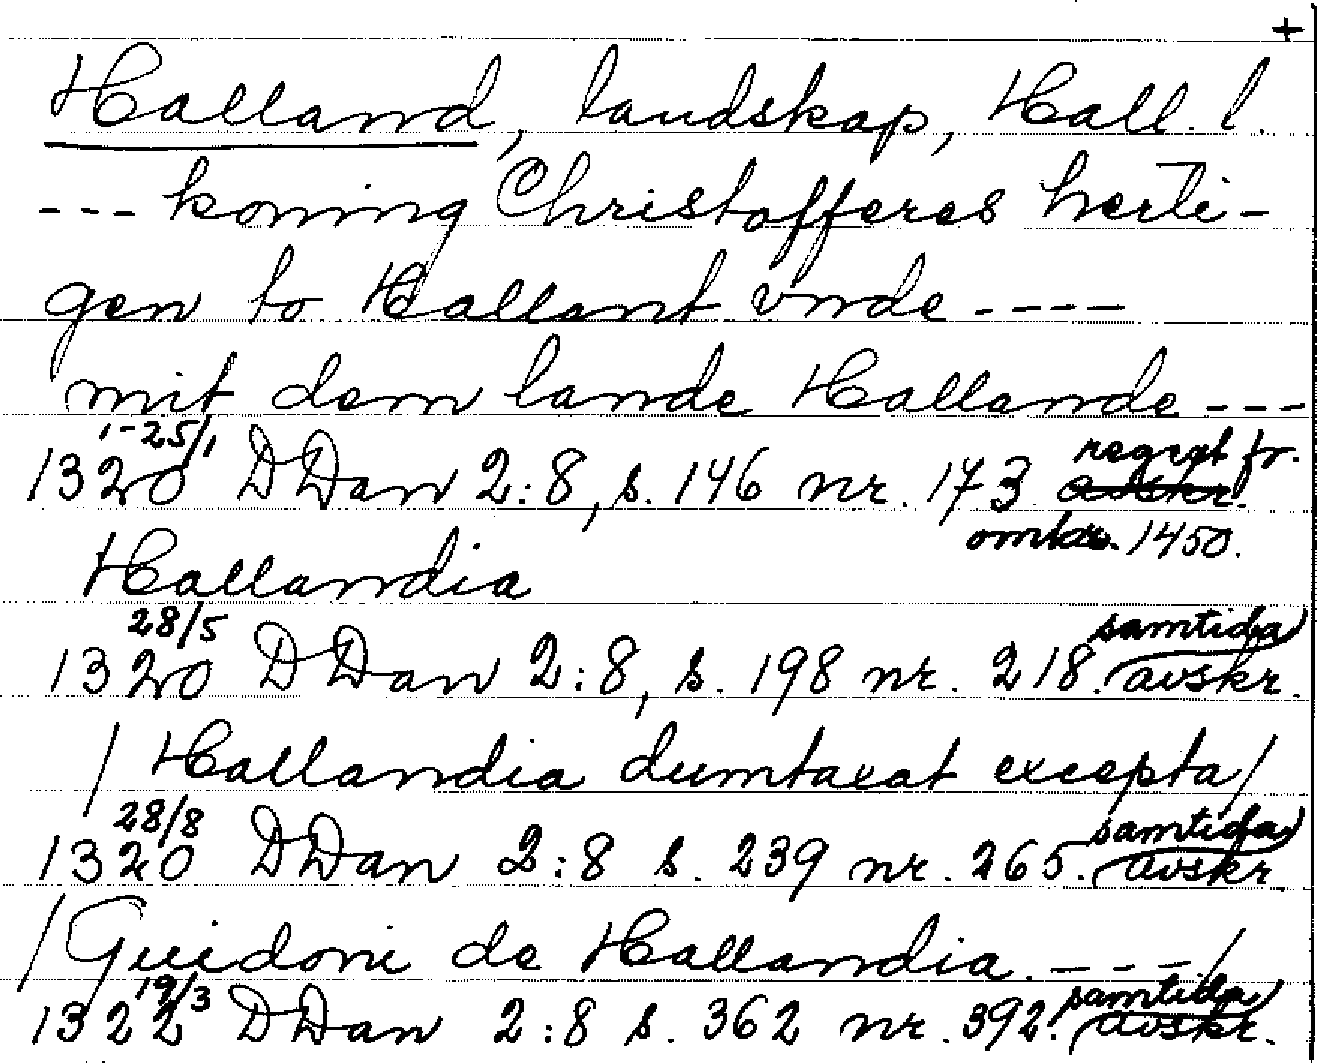 +
Halland, landskap, Hall. l.
--- koning Christofferes herti-
gen to Hallant vnde ----
mit dem lande Hallande ---
1320 1-25/1 DDan 2:8, s. 146 nr. 173 regest fr. avskr.
omkr. 1450.
Hallandia
1320 28/5 DDan 2:8, s. 198 nr. 218. samtida avskr.
/Hallandia dumtaxat excepta/
1320 28/8 DDan 2:8 s. 239 nr. 265. samtida avskr
/Guidoni de Hallandia. ---/
1322 19/3 DDan 2:8 s. 362 nr. 392. samtida avskr.